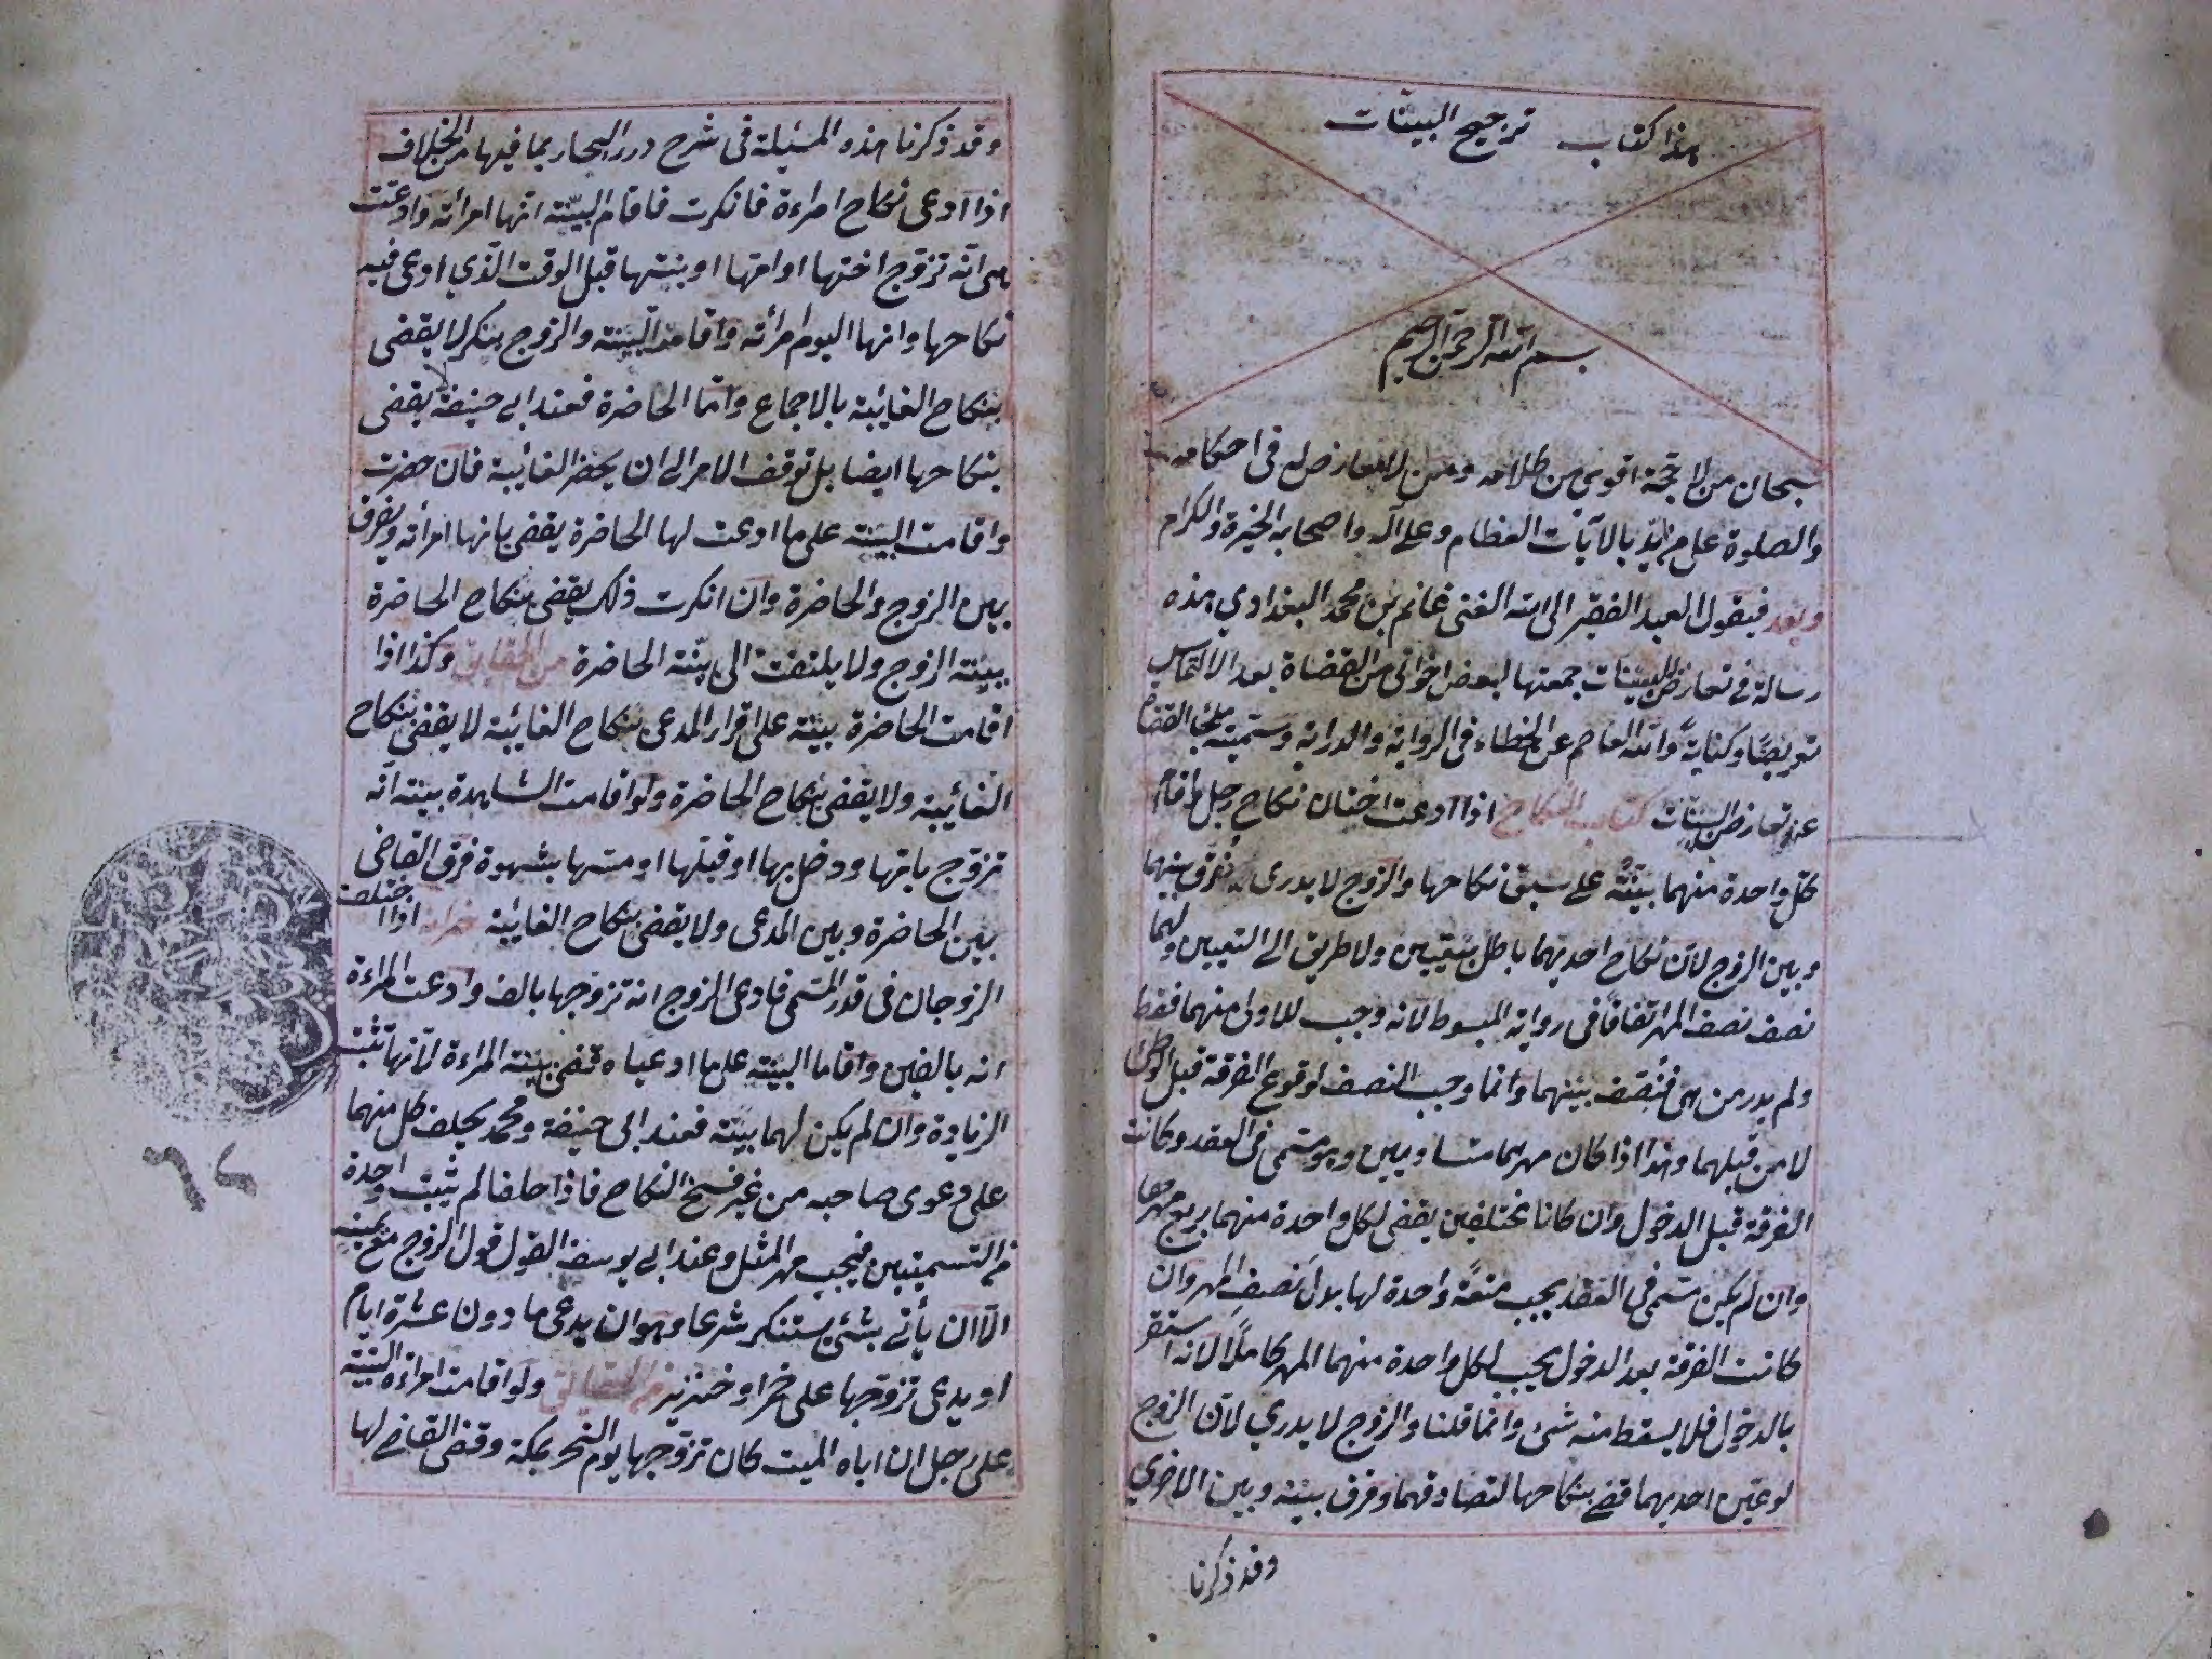 هذا كتاب ترجيح البينات
بسم الله الرحمن الرحيم
سبحان من لا حجة اقوى من كلامه ومن لا معارض له في احكامه
والصلوة على من ايد بالآيات العظام وعلى آله واصحابه الخيرة والكرام
وبعد فيقول العبد الفقير الى الله الغنى غانم بن محمد البغدادي هذه
رسالة في تعارض البينات جمعتها لبعض اخواني من القضاة بعد الالتماس
تعريضا وكناية والله العاصم عن الخطاء فى الرواية والدراية وسميته ملجأ القضاة
عند تعارض البينات كتاب النكاح اذا ادعت اختان نكاح رجل واقام
كل واحدة منهما بينة على سبق نكاحها والزوج لا يدرى فرق بينهما
وبين الزوج لان نكاح احديهما باطل بيقين ولا طريق الى التعيين ولهما
نصف نصف المهر اتفاقا فى رواية المبسوط لانه وجب للاولى منهما فقط
ولم يدر من هى فينصف بينهما وانما وجب النصف لوقوع الفرقة قبل الوطئ
لا من قبلهما وهذا اذا كان مهرهما متساويين وهو مسمى فى العقد وكانت
الفرقة قبل الدخول وان كانا مختلفين يقضى لكل واحدة منهما بربع مهرها
وان لم يكن مسمى فى العقد يجب متعة واحدة لها بدل نصف المهر وان
كانت الفرقة بعد الدخول يجب لكل واحدة منهما المهر كاملا لانه استقر
بالدخول فلا يسقط منه شئ وانما قلنا والزوج لا يدري لان الزوج
لو عين احديهما قضى بنكاحها لتصادقهما وفرق بينه وبين الاخرى
وقد ذكرنا
وقد ذكرنا هذه المسئلة فى شرح درر البحار بما فيها من الخلاف
اذا ادعى نكاح امراءة فانكرت فاقام البينة انها امرأته وادعت
هى انه تزوج اختها او امها او بنتها قبل الوقت الذي ادعى فيه
نكاحها وانها اليوم امرأته واقامت البينة والزوج ينكر لا يقضى
بنكاح الغائبة بالاجماع واما الحاضرة فعند ابى حنيفة لا يقضى
بنكاحها ايضا بل توقف الامر الى ان يحضر الغائبة فان حضرت
واقامت البينة على ما ادعت لها الحاضرة يقضى بانها امرأته ويفرق
بين الزوج والحاضرة وان انكرت ذلك يقضى بنكاح الحاضرة
ببينة الزوج ولا يلتفت الى بينة الحاضرة من الحقايق وكذا اذا
اقامت الحاضرة بينة على اقرار المدعى بنكاح الغائبة لا يقضى بنكاح
الغائبة ولا يقضى بنكاح الحاضرة ولو اقامت الشاهدة بينة انه
تزوج بامها ودخل بها او قبلها او مسها بشهوة فرق القاضى
بين الحاضرة وبين المدعى ولا يقضى بنكاح الغائبة خزانه اذا اختلف
الزوجان فى قدر المسمى فادعى الزوج انه تزوجها بالف وادعت المراءة
انه بالفين واقاما البينة على ما ادعياه قضى ببينة المراءة لانها تثبت
الزيادة وان لم يكن لهما بينة فعند ابى حنيفة ومحمد يحلف كل منهما
على دعوى صاحبه من غير فسخ النكاح فاذا حلفا لم يثبت واحدة
من التسميتين فيجب مهر المثل وعند ابى يوسف القول قول الزوج مع يمينه
الا ان يأتى بشئ يستنكر شرعا وهو ان يدعى ما دون عشرة ايام
او يدعى تزوجها على خمر او خنزير من الحقايق ولو اقامت امراءة البينة
على رجل ان اباه الميت كان تزوجها يوم النحر بمكة وقضى القاضى لها